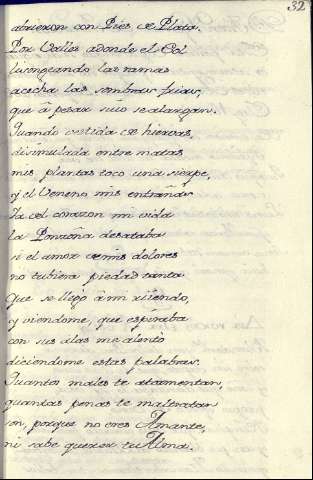 32
abrieron con Pies de Plata.
Por Valles adonde el Sol
lisongeando las ramas
acecha las sombras frias,
que â pesar suio se alargan.
Quando vestida de hiervas,
disimulada entre matas
mis plantas toco una sierpe,
y el Veneno mis entrañas
Ya del corazon mi vida
la Ponzoña desataba
si el amor de mis dolores
no tubiera piedad tanta
Que se llegô â mi riiendo,
y viendome, que espiraba
con sus alas me alentô
diciendome estas palabras.
Quantos males te atormentan,
quantas penas te maltratan
son, porque no eres Amante,
ni sabe querer tu Alma.